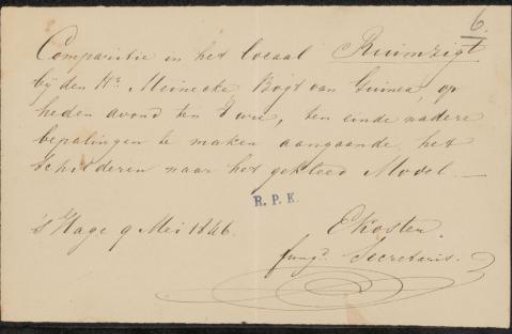 6.
Comparitie in het locaal Ruimzigt
bij den Hr. Meineke, Bogt van Guinea, op
heden avond ten 7 ure, ten einde nadere
bepalingen te maken aangaande het
schilderen naar het gekleed Model. —
R. P. K.
's Hage 9 Mei 1846.
EKosten.
fung. Secretaris.